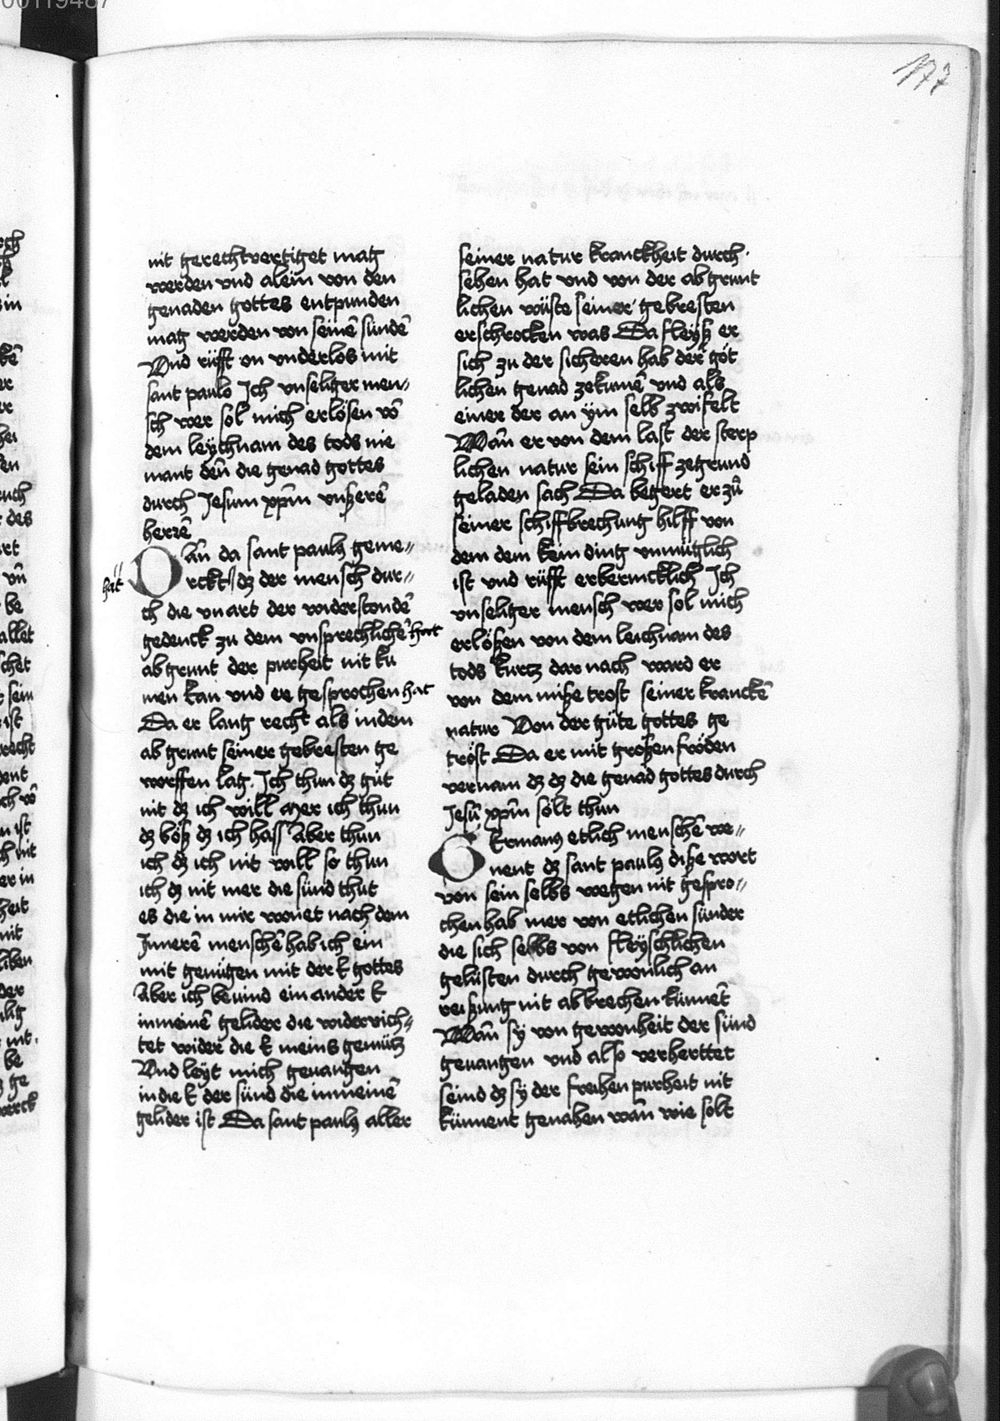 177
nit gerechtvertiget mag
werden vnd alein von den
genaden gottes entpunden
mag werden von seinē sündē
Vnd rüfft on vnderlos mit
sant paulo Ich vnseliger men〃
sch wer sol mich erlösen vō
dem leychnam des tods nie
mant deñ die genad gottes
durch Jesum xpm̄ vnßerē
herrē
Dañ da sant paulꝰ geme〃
hat
rckt dꝫ der mensch dur〃
ch die vnart der widerstondē
gedenck zu dem vnsprechlichē
abgrunt der purheit nit ku
men kan vnd er gesprochen hat
Da er lang recht als in dem
abgrunt seiner gebresten ge
worffen lag. Ich thun dꝫ gůt
nit dꝫ ich will aber ich thun
dꝫ böß dꝫ ich hass Aber thun
ich dꝫ ich nit will so thun
ich dꝫ nit mer die sünd thut
es die in mir wonet nach dem
Innerē menschē hab ich ein
mit genügen mit der E gottes
Aber ich bevind ein ander E
in meinē gelider die widervich〃
tet wider die E meins gemütz
Vnd leyt mich gevangen
in die E der sünd die in meinē
gelider ist Da sant paulꝰ aller
seiner natur kranckheit durch
sehen hat vnd von der abgrunt
lichen wüste seiner gebresten
erschrocken was Da fleyß er
sich zu der sicheren hab der göt
lichen genad zekumē vnd als
einer der an ym selb zwifelt
Wañ er von dem last der sterp
lichen natur sein schiff zegrund
geladen sach Da begert er zů
seiner schiffbrechung hilff von
dem dem kein ding vnmüglich
ist vnd rüfft erbermcklich Ich
vnseliger mensch wer sol mich
erlößen von dem leichnam des
tods kurtz dar nach ward er
von dem miße trost seiner kranckē
natur Von der güte gottes ge
tröst Da er mit großen fröden
vernam dꝫ dꝫ die genad gottes durch
Jesū xpm̄ solt thun
Ermanꝰ etlich menschē we〃
nent dꝫ sant paulꝰ diße wort
von sein selbs wegen nit gespro〃
chen hab mer von etlichen sünder
die sich selbs von fleyschlichen
gelüsten durch gewonlich an
reißung nit abbrechen künnēt
Wañ sy von gewonheit der sünd
gevangen vnd also verherttet
seind dꝫ sy der freihen purheit nit
künnent genahen wañ wie solt